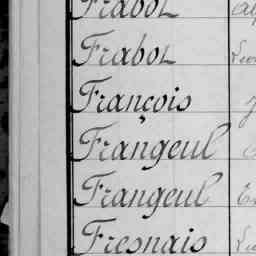 Frabol
Frabol
François
Frangeul
Frangeul
Fresnais